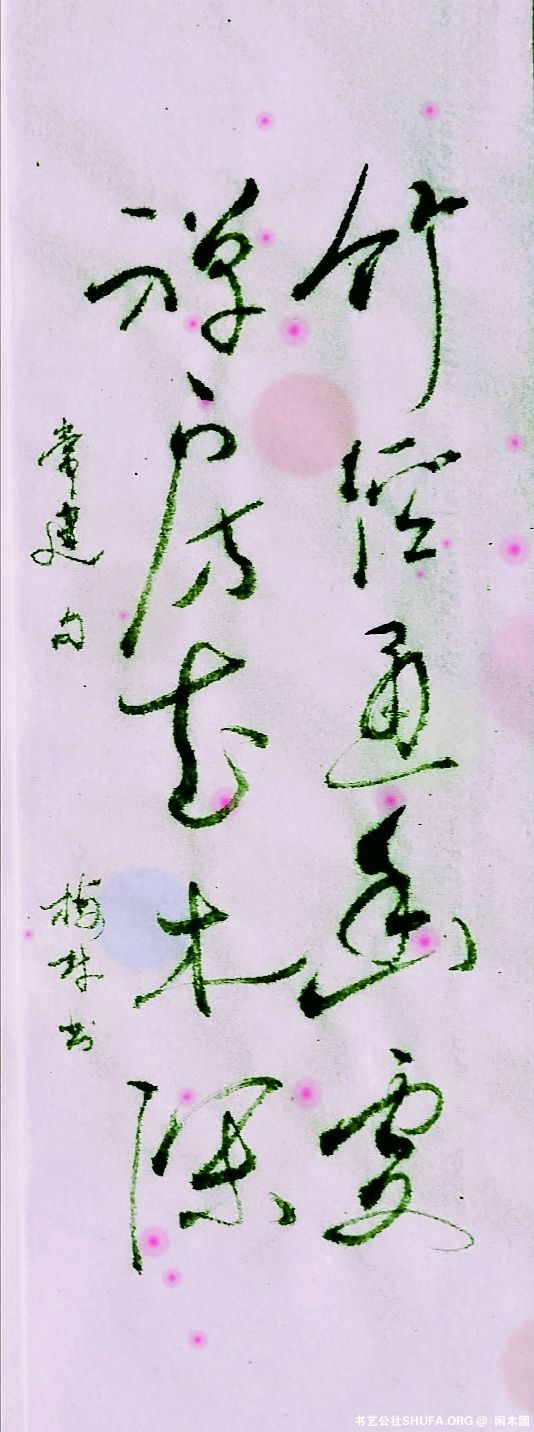 竹径通幽处
禅房花木深
常建句
梅林书
书艺公社SHUFA.ORG @ 闲木园